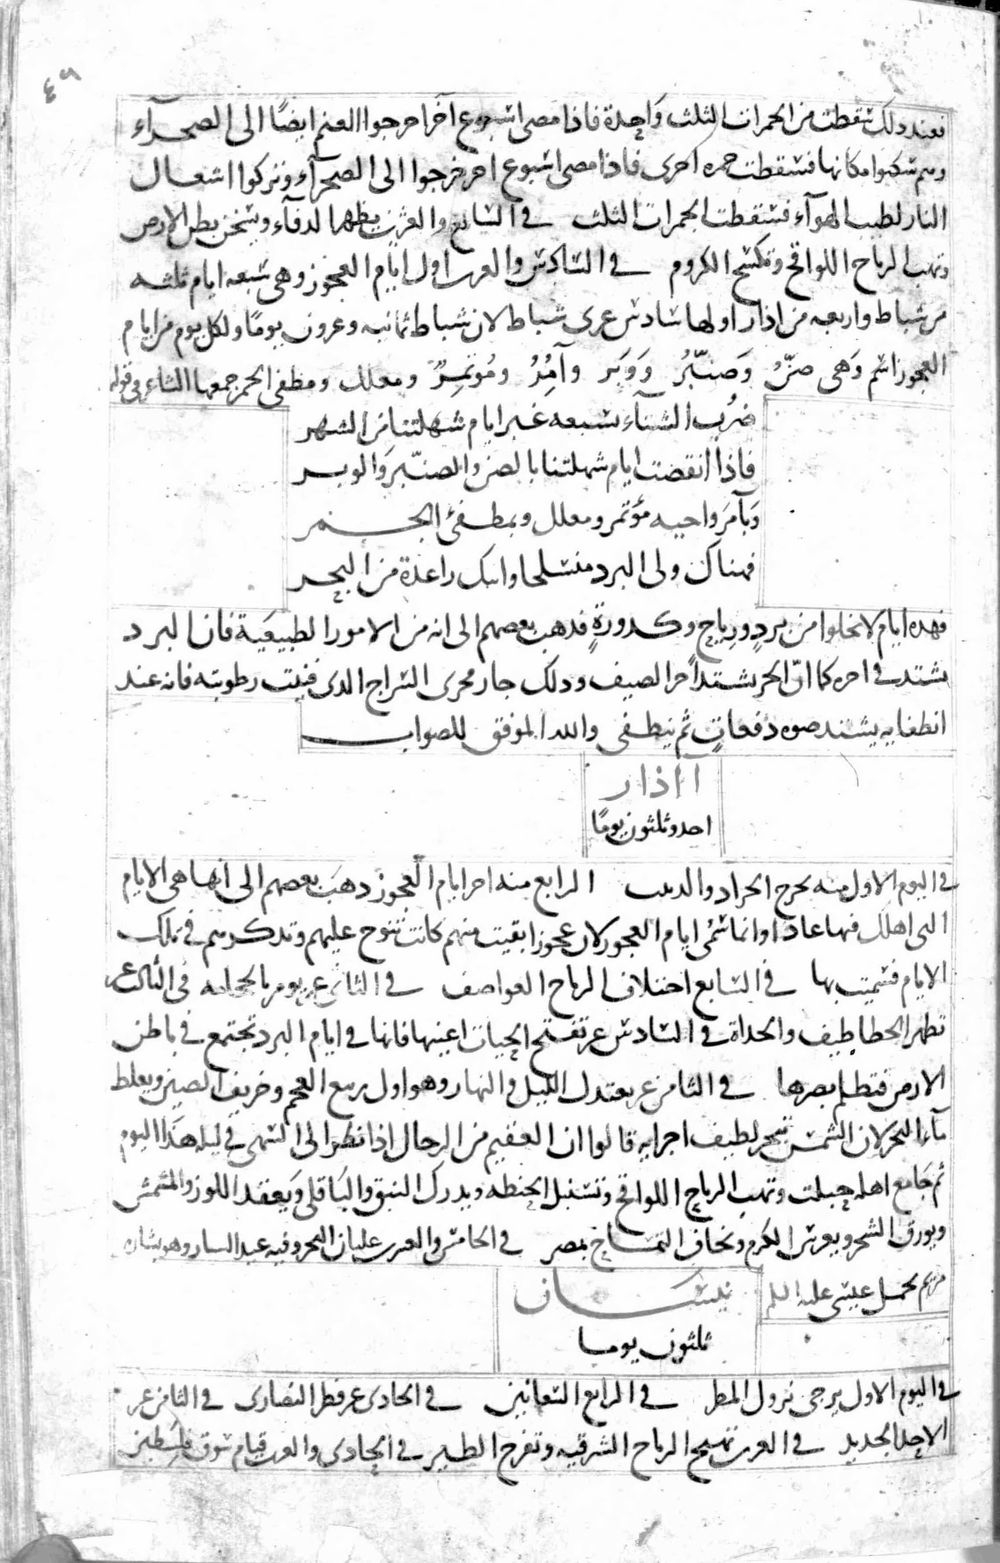 ٤٦
فعند ذلك سقطت من الجمرات الثلث واحدة فاذا مضى اسبوع آخر اخرجوا الغنم ايضًا الى الصحرآء
وهم سكنوا مكانها فسقطت جمرة اخرى فاذا مضى اسبوع اخر خرجوا الى الصحرآء وتركوا اشعال
النار لطيب الهوآء فسقطت الجمرات الثلث في السابع والعشرين يظهر الدفآء ويسخن بطن الارض
وتهب الرياح اللواقح وتكسح الكروم في السادس والعشرين اول ايام العجوز وهى سبعه ايام ثلثه
من شباط واربعه من اذار اولها سادس عشرى شباط لان شباط ثمانيه وعشرون يومًا ولكل يوم من ايام
العجوز اسم وهى صنٌّ وصنّبرُ ووَبَر وآمِرُ ومُؤتمِرٌ ومعلل ومطفى الجمر جمعها الشاعر فى قوله
ضرب الشتآء بسبعه غبر ايام شهلتنا من الشهر
فاذا انقضت ايام شهلتنا بالصن والصنّبر والوبر
وبآمر واخيه مؤتمر ومعلل وبمطفئ الجمر
فهناك ولى البرد منسلخا واتتك راعدة من البحر
فهذه ايام لا تخلوا من بردٍ ورياحٍ وكدورةٍ فذهب بعضهم الى انه من الامور الطبيعية فان البرد
يشتد في اخره كما انّ الحر يشتد اخر الصيف وذلك جار مجرى السراج الذى فنيت رطوبته فانه عند
انطفايه يشتد ضوه دفعاتٍ ثم ينطفى والله الموفق للصواب
آاذار
احد وثلثون يومًا
في اليوم الاول منه يخرج الجراد والدبيب الرابع منه اخر ايام العجوز ذهب بعضهم الى انها هى الايام
التى اهلك فيها عاد وانما سُمّى ايام العجوز لان عجوزا بقيت منهم كانت تنوح عليهم وتذكرهم في تلك
الايام فسميت بها في السابع اختلاف الرياح العواصف في الثانى عشر يومر بالحجامه فى الثالث عشر
تظهر الخطاطيف والحداة في السادس عشر تفتح الحيات اعينها فانها في ايام البرد تجتمع في باطن
الارض فتظلم بصرها في الثامن عشر يعتدل الليل والنهار وهو اول ربيع العجم وخريف الصين ويغلظ
مآء البحر لان الشمس تبخر لطيف اجزايه قالوا ان العقيم من الرجال اذا نظر الى السهى في ليلة هذا اليوم
ثم جامع اهله حبلت وتهب الرياح اللواقح وتسنبل الحنطه ويدرك النبق والباقلى ويعقد اللوز والمشمش
ويورق الشجر ويغرس الكرم وتخاف التماسيح بمصر في الخامس والعشرين غليان البحر وفيه عيد السبار وهو بشارة
مريم بحمل عيسى عليه السلم
نيسان
ثلثون يوما
في اليوم الاول يرجى نزول المطر في الرابع الشعانين في الحادى عشر فطر النصارى في الثامن عشر
الاحد الجديد في العشرين تهيج الرياح الشرقيه وتفرخ الطير في الحادى والعشرين قيام سوق فلسطين